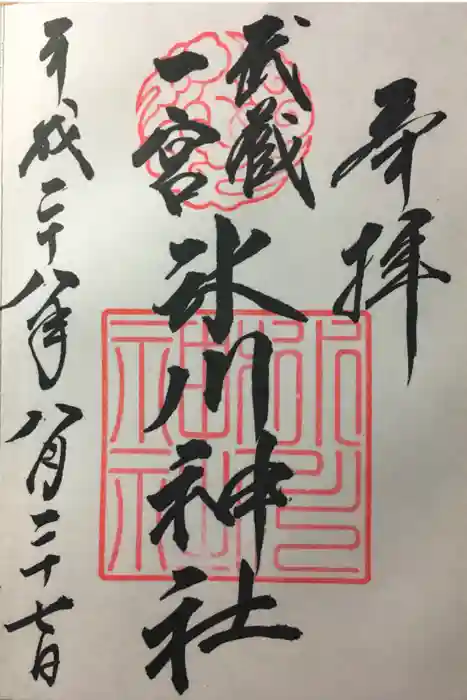 奉拝
武蔵
一宮
氷川神社
平成二十八年八月二十七日